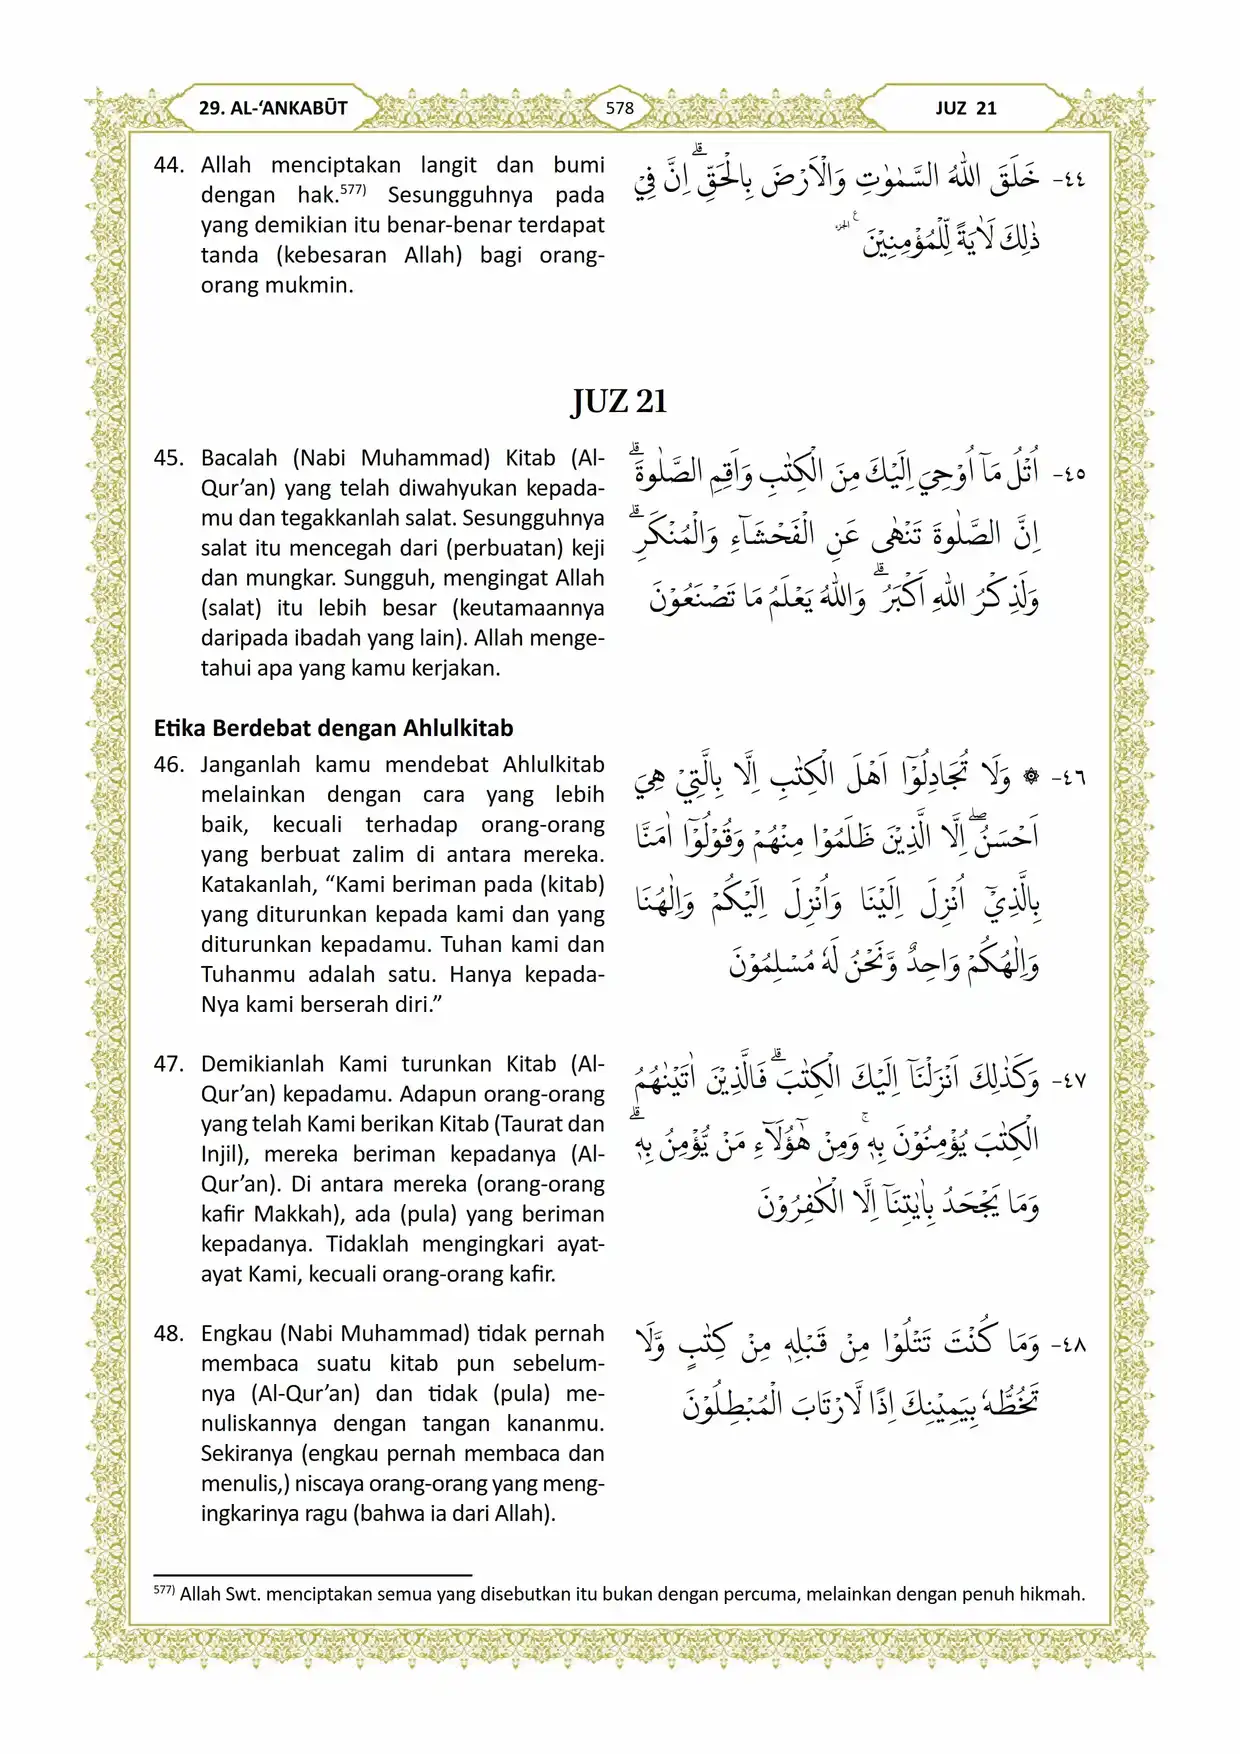 29. AL-‘ANKABŪT
578
JUZ 21
44. Allah menciptakan langit dan bumi
dengan hak.⁵⁷⁷⁾ Sesungguhnya pada
yang demikian itu benar-benar terdapat
tanda (kebesaran Allah) bagi orang-
orang mukmin.
٤٤- خَلَقَ اللّٰهُ السَّمٰوٰتِ وَالْاَرْضَ بِالْحَقِّۗ اِنَّ فِيْ
ذٰلِكَ لَاٰيَةً لِّلْمُؤْمِنِيْنَ ࣖ
JUZ 21
45. Bacalah (Nabi Muhammad) Kitab (Al-
Qur’an) yang telah diwahyukan kepada-
mu dan tegakkanlah salat. Sesungguhnya
salat itu mencegah dari (perbuatan) keji
dan mungkar. Sungguh, mengingat Allah
(salat) itu lebih besar (keutamaannya
daripada ibadah yang lain). Allah menge-
tahui apa yang kamu kerjakan.
٤٥- اُتْلُ مَآ اُوْحِيَ اِلَيْكَ مِنَ الْكِتٰبِ وَاَقِمِ الصَّلٰوةَۗ
اِنَّ الصَّلٰوةَ تَنْهٰى عَنِ الْفَحْشَاۤءِ وَالْمُنْكَرِۗ
وَلَذِكْرُ اللّٰهِ اَكْبَرُۗ وَاللّٰهُ يَعْلَمُ مَا تَصْنَعُوْنَ
Etika Berdebat dengan Ahlulkitab
46. Janganlah kamu mendebat Ahlulkitab
melainkan dengan cara yang lebih
baik, kecuali terhadap orang-orang
yang berbuat zalim di antara mereka.
Katakanlah, “Kami beriman pada (kitab)
yang diturunkan kepada kami dan yang
diturunkan kepadamu. Tuhan kami dan
Tuhanmu adalah satu. Hanya kepada-
Nya kami berserah diri.”
٤٦- ۞ وَلَا تُجَادِلُوْٓا اَهْلَ الْكِتٰبِ اِلَّا بِالَّتِيْ هِيَ
اَحْسَنُۖ اِلَّا الَّذِيْنَ ظَلَمُوْا مِنْهُمْ وَقُوْلُوْٓا اٰمَنَّا
بِالَّذِيْٓ اُنْزِلَ اِلَيْنَا وَاُنْزِلَ اِلَيْكُمْ وَاِلٰهُنَا
وَاِلٰهُكُمْ وَاحِدٌ وَّنَحْنُ لَهٗ مُسْلِمُوْنَ
47. Demikianlah Kami turunkan Kitab (Al-
Qur’an) kepadamu. Adapun orang-orang
yang telah Kami berikan Kitab (Taurat dan
Injil), mereka beriman kepadanya (Al-
Qur’an). Di antara mereka (orang-orang
kafir Makkah), ada (pula) yang beriman
kepadanya. Tidaklah mengingkari ayat-
ayat Kami, kecuali orang-orang kafir.
٤٧- وَكَذٰلِكَ اَنْزَلْنَآ اِلَيْكَ الْكِتٰبَۗ فَالَّذِيْنَ اٰتَيْنٰهُمُ
الْكِتٰبَ يُؤْمِنُوْنَ بِهٖۚ وَمِنْ هٰٓؤُلَاۤءِ مَنْ يُّؤْمِنُ بِهٖۗ
وَمَا يَجْحَدُ بِاٰيٰتِنَآ اِلَّا الْكٰفِرُوْنَ
48. Engkau (Nabi Muhammad) tidak pernah
membaca suatu kitab pun sebelum-
nya (Al-Qur’an) dan tidak (pula) me-
nuliskannya dengan tangan kananmu.
Sekiranya (engkau pernah membaca dan
menulis,) niscaya orang-orang yang meng-
ingkarinya ragu (bahwa ia dari Allah).
٤٨- وَمَا كُنْتَ تَتْلُوْا مِنْ قَبْلِهٖ مِنْ كِتٰبٍ وَّلَا
تَخُطُّهٗ بِيَمِيْنِكَ اِذًا لَّارْتَابَ الْمُبْطِلُوْنَ
⁵⁷⁷⁾ Allah Swt. menciptakan semua yang disebutkan itu bukan dengan percuma, melainkan dengan penuh hikmah.